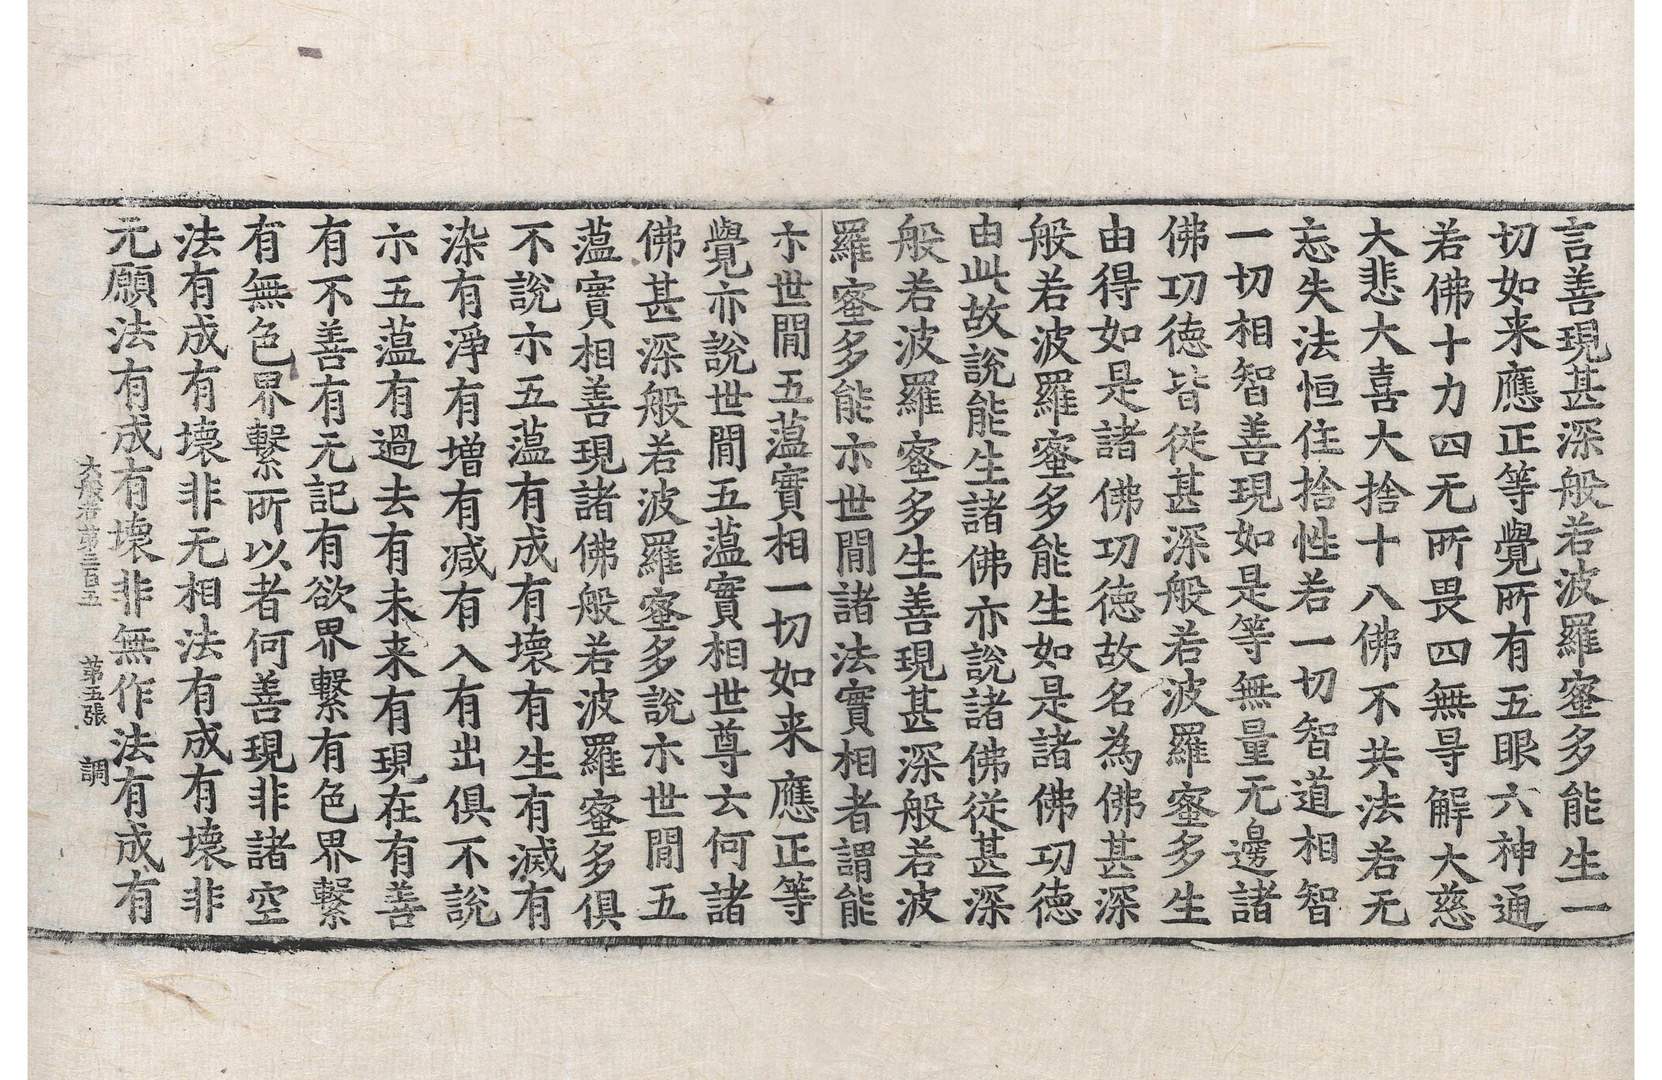 言善現甚深般若波羅蜜多能生一
切如来應正等覺所有五眼六神通
若佛十力四无所畏四無㝵解大慈
大悲大喜大捨十八佛不共法若无
忘失法恒住捨性若一切智道相智
一切相智善現如是等無量无邊諸
佛功德皆従甚深般若波羅蜜多生
由得如是諸佛功德故名為佛甚深
般若波羅蜜多能生如是諸佛功德
由此故說能生諸佛亦說諸佛従甚深
般若波羅蜜多生善現甚深般若波
羅蜜多能示世間諸法實相者謂能
示世間五蕰實相一切如来應正等
覺亦說世間五蕰實相世尊云何諸
佛甚深般若波羅蜜多說示世間五
蕰實相善現諸佛般若波羅蜜多俱
不說示五蕰有成有壞有生有滅有
染有淨有增有减有入有出俱不說
示五蕰有過去有未来有現在有善
有不善有无記有欲界繫有色界繫
有無色界繫所以者何善現非諸空
法有成有壞非无相法有成有壞非
无願法有成有壞非無作法有成有
大般若第三百五 第五張 調